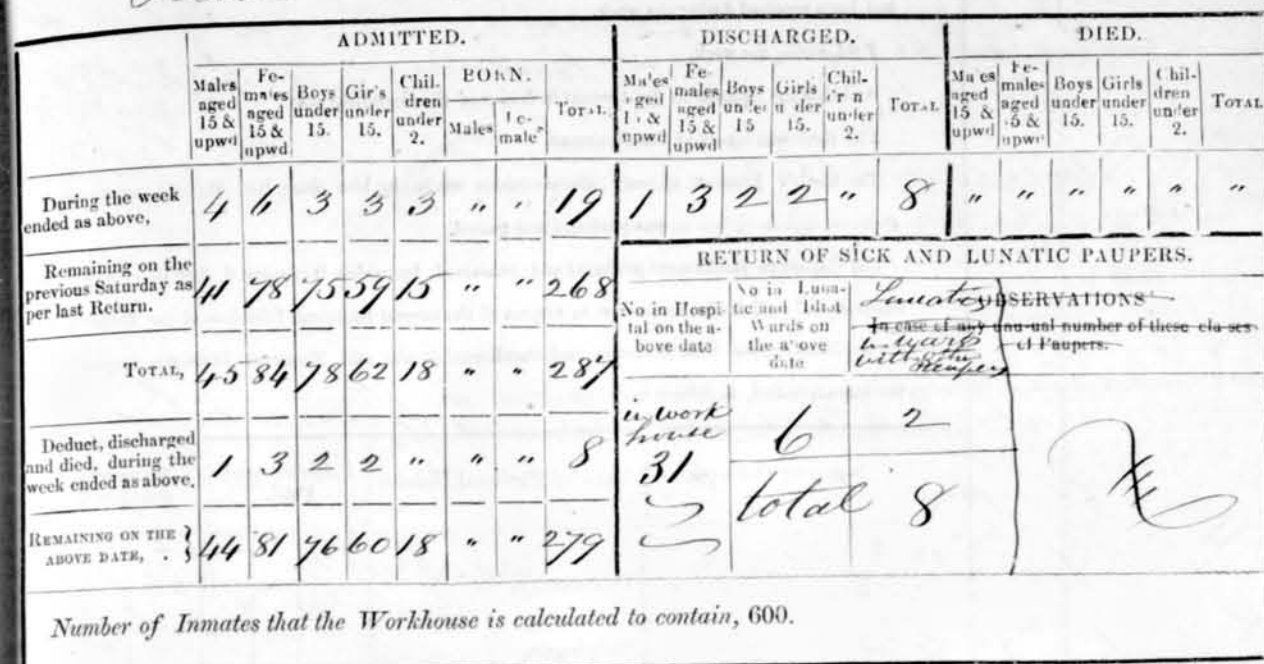 ADMITTED. DISCHARGED. DIED.
Males aged 15 & upwd Fe-males aged 15 & upwd Boys under 15. Girls under 15. Chil-dren under 2. BORN. Males Fe-male TOTAL Males aged 15 & upwd Fe-males aged 15 & upwd Boys under 15 Girls under 15. Chil-dr n under 2. TOTAL Males aged 15 & upwd Fe-males aged 15 & upwd Boys under 15. Girls under 15. Chil-dren under 2. TOTAL
During the week ended as above, 4 6 3 3 3 " " 19 1 3 2 2 " 8 " " " " " "
Remaining on the previous Saturday as per last Return. 41 78 75 59 15 " " 268
TOTAL, 45 84 78 62 18 " " 287
Deduct, discharged and died, during the week ended as above, 1 3 2 2 " " " 8
REMAINING ON THE ABOVE DATE, . } 44 81 76 60 18 " " 279
RETURN OF SICK AND LUNATIC PAUPERS.
No in Hospi-tal on the a-bove date
No in Luna-tic and Idiot Wards on the above date
Lunatics
OBSERVATIONS
In case of any unusual number of these classes
of Paupers.
in work
house
31
6 2
total 8
Number of Inmates that the Workhouse is calculated to contain, 600.